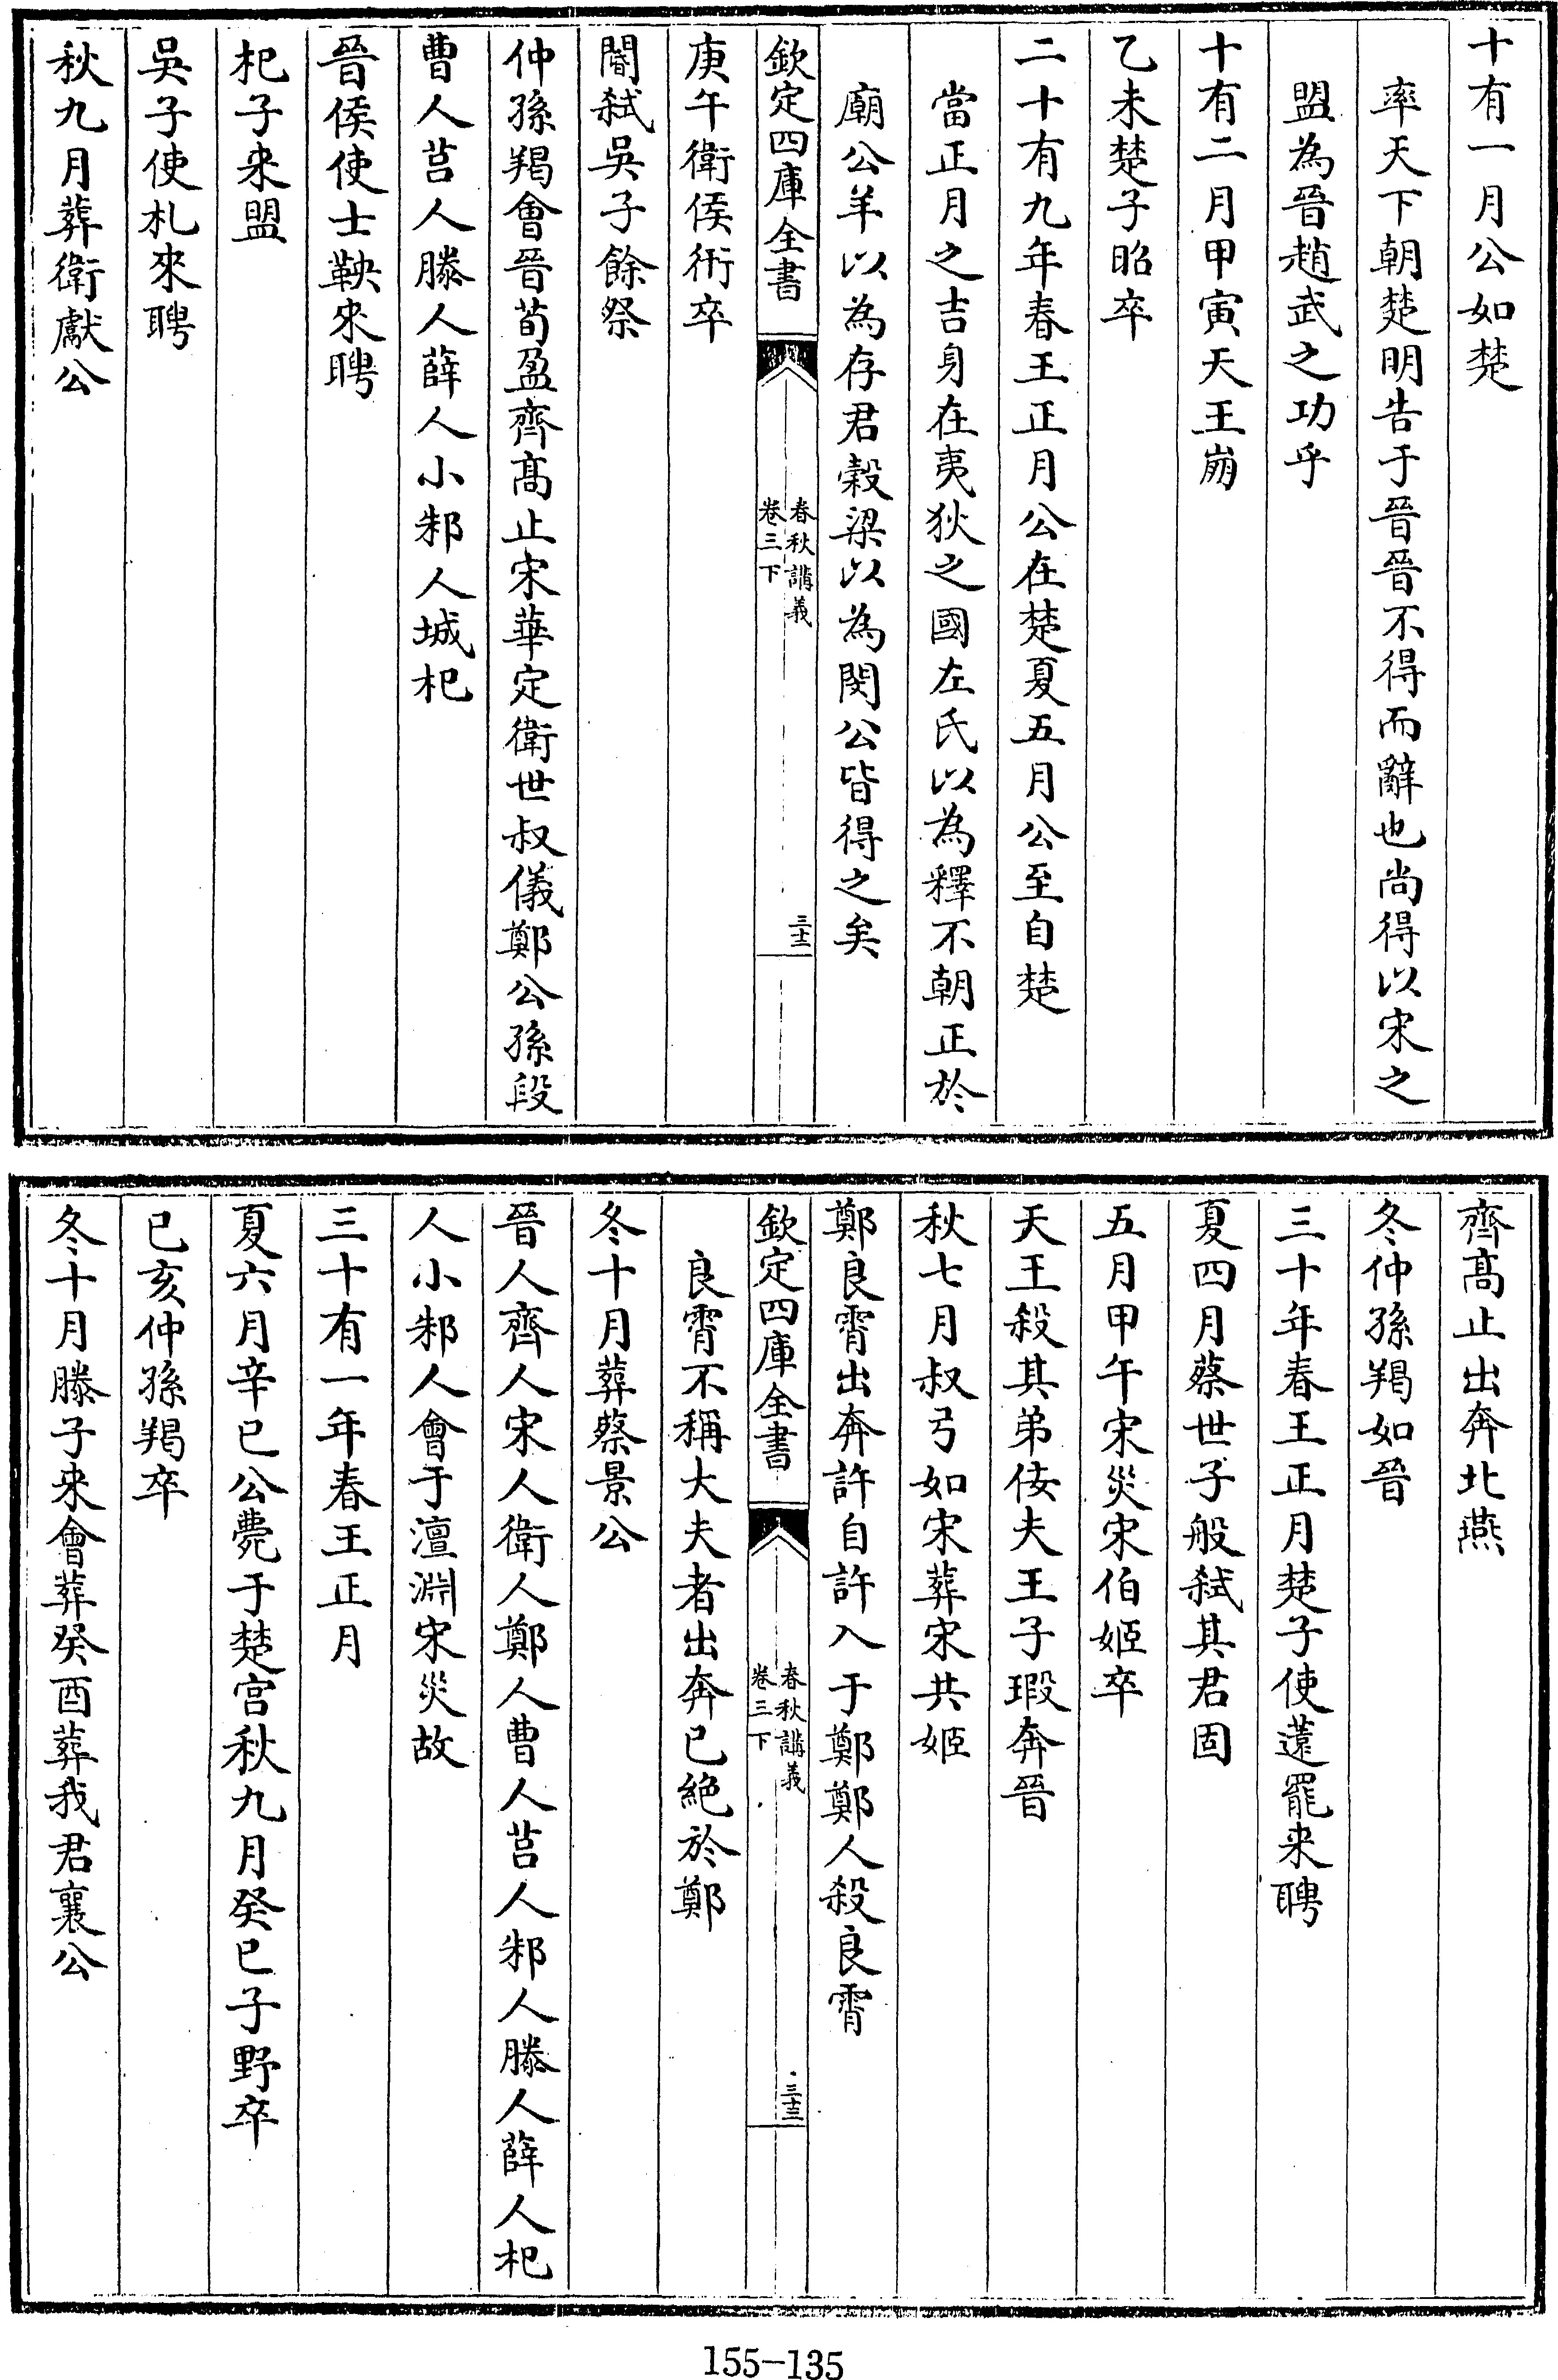 十有一月公如楚
率天下朝楚明告于晉晉不得而辭也尚得以宋之
盟為晉趙武之功乎
十有二月甲寅天王崩
乙未楚子昭卒
二十有九年春王正月公在楚夏五月公至自楚
當正月之吉身在夷狄之國左氏以為釋不朝正於
廟公羊以為存君榖梁以為閔公皆得之矣
欽定四庫全書
春秋講義
卷三下
三十二
庚午衛侯衎卒
閽弑吳子餘祭
仲孫羯會晉荀盈齊髙止宋華定衛世叔儀鄭公孫段
曹人莒人滕人薛人小邾人城杞
晉侯使士鞅來聘
杞子來盟
吳子使札來聘
秋九月葬衛獻公
齊髙止出奔北燕
冬仲孫羯如晉
三十年春王正月楚子使薳罷来聘
夏四月蔡世子般弑其君固
五月甲午宋災宋伯姬卒
天王殺其弟佞夫王子瑕奔晉
秋七月叔弓如宋葬宋共姬
鄭良霄出奔許自許入于鄭鄭人殺良霄
欽定四庫全書
春秋講義
卷三下
三十三
良霄不稱大夫者出奔已絶於鄭
冬十月葬蔡景公
晉人齊人宋人衛人鄭人曹人莒人邾人滕人薛人杞
人小邾人會于澶淵宋災故
三十有一年春王正月
夏六月辛巳公薨于楚宫秋九月癸巳子野卒
已亥仲孫羯卒
冬十月滕子来會葬癸酉葬我君襄公
155-135